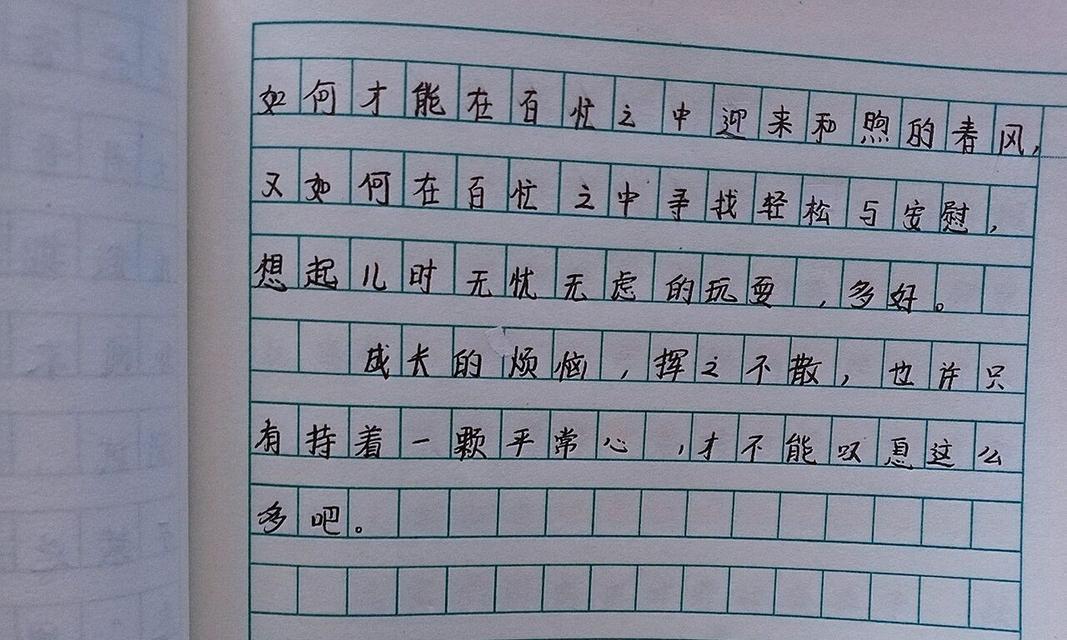 如何才能在百忙之中迎来和煦的春风，
又如何在百忙之中寻找轻松与安慰，
想起儿时无忧无虑的玩耍，多好。
成长的烦恼，挥之不散，也许只
有持着一颗平常心，才不能叹息这么
多吧。